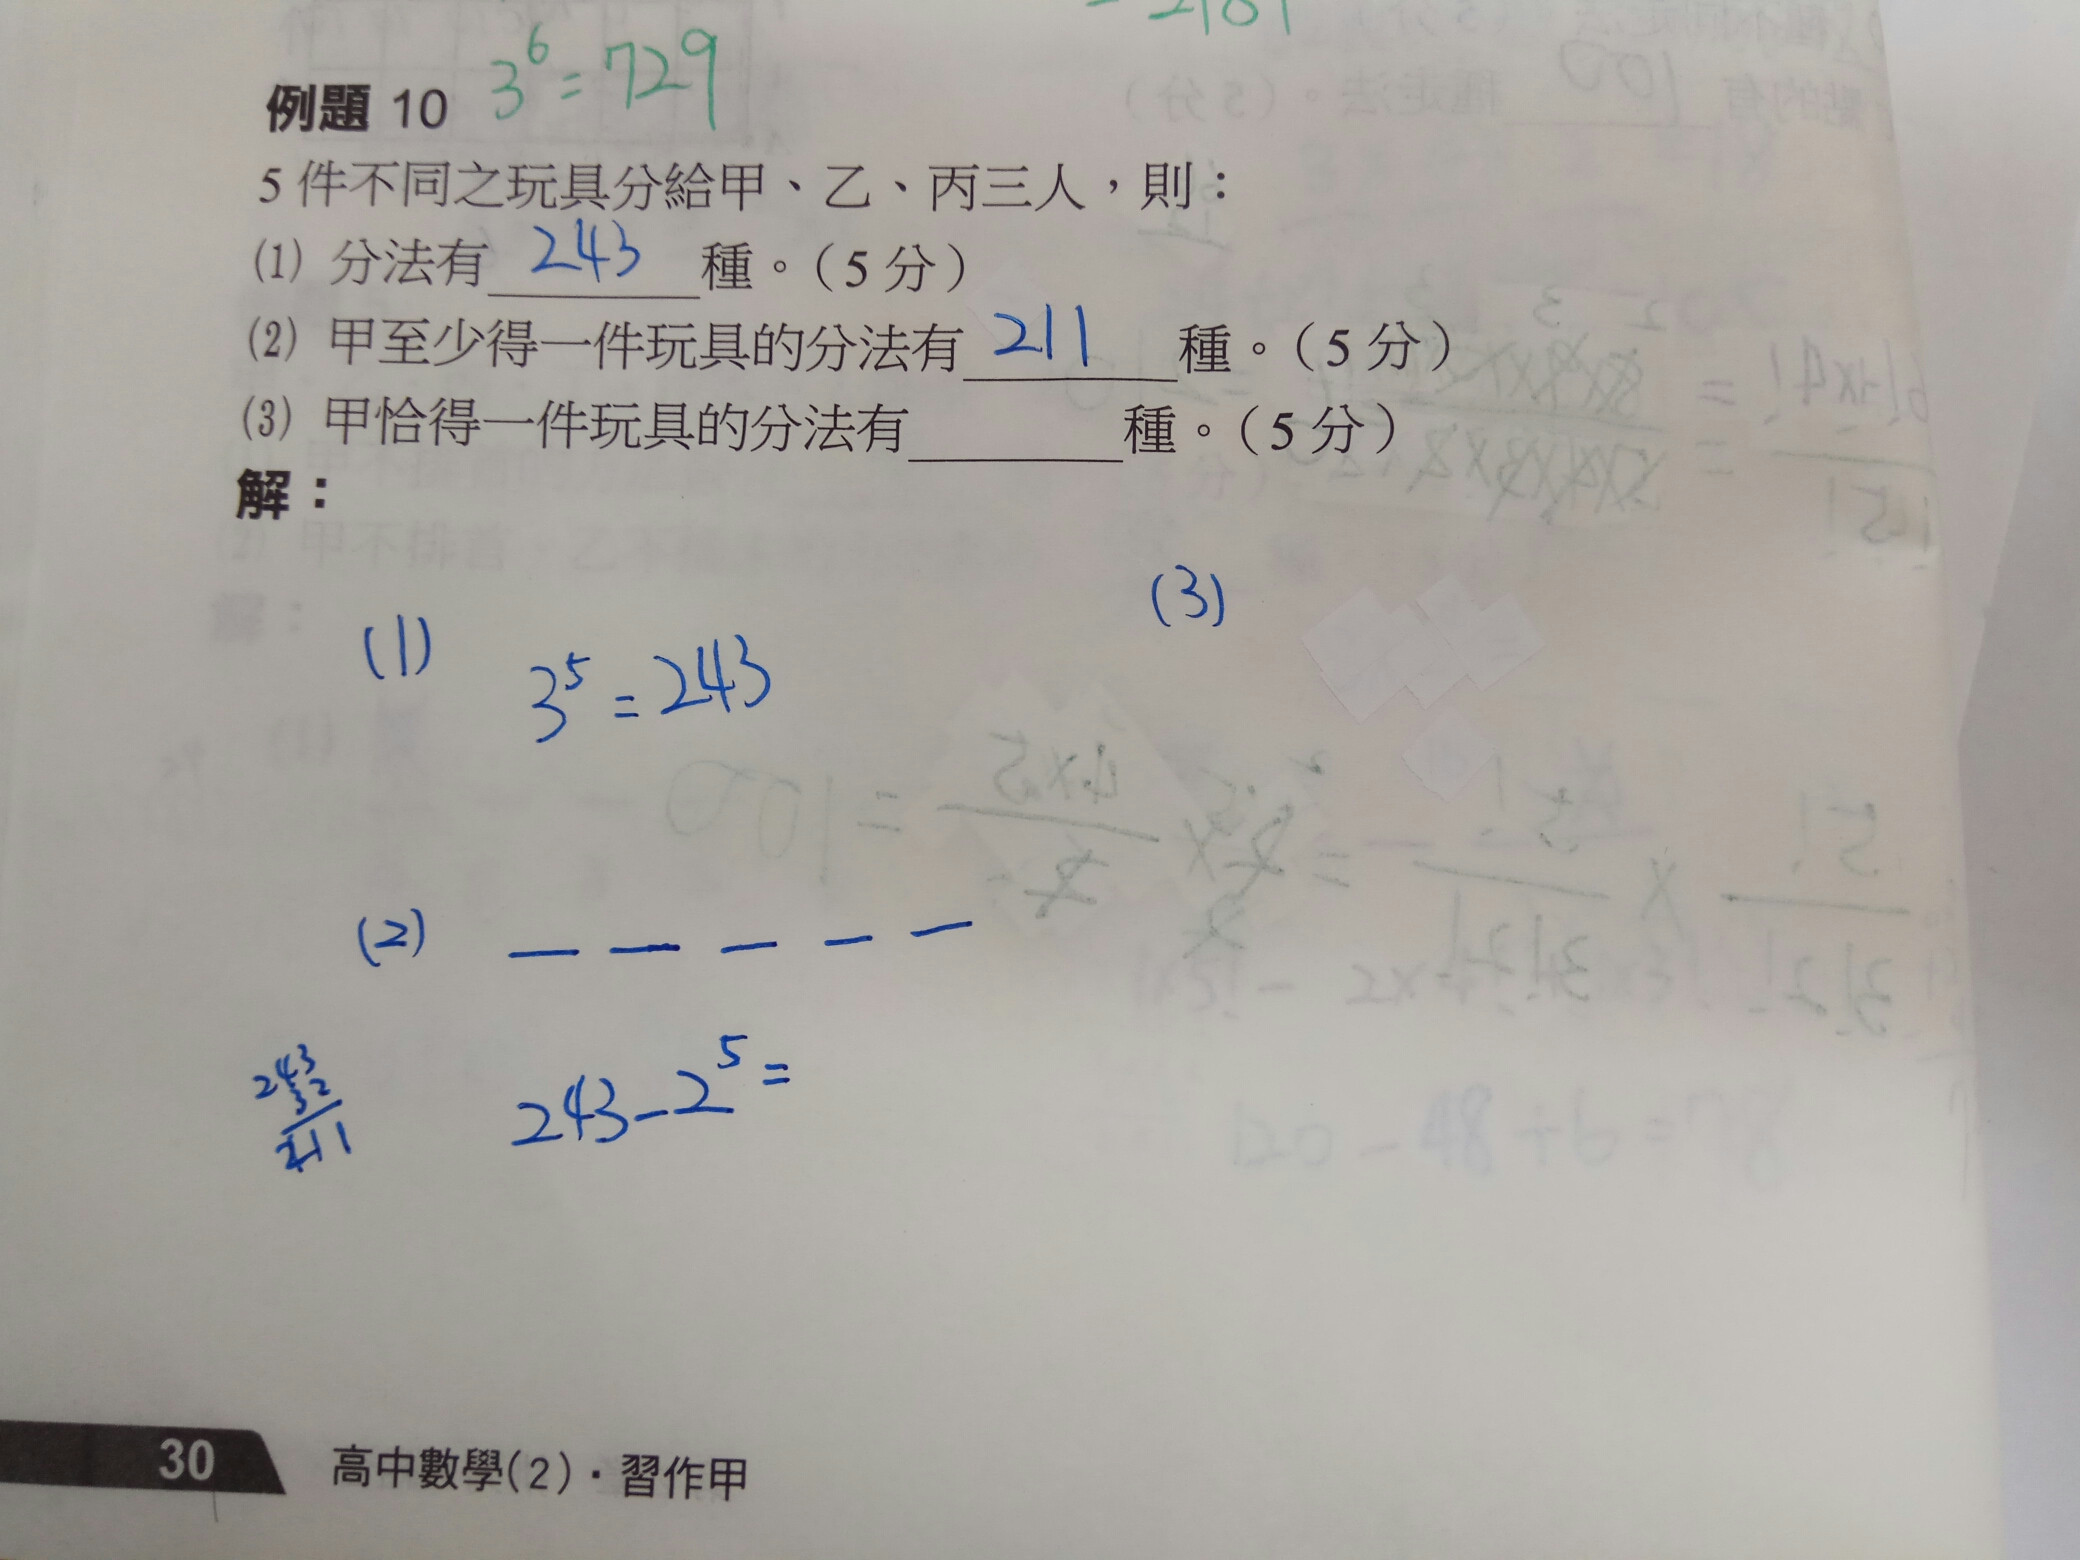 3⁶=729
例題 10
5 件不同之玩具分給甲、乙、丙三人，則：
(1) 分法有 243 種。（5 分）
(2) 甲至少得一件玩具的分法有 211 種。（5 分）
(3) 甲恰得一件玩具的分法有______種。（5 分）
解：
(1) 3⁵=243
(2) — — — — —
243-2⁵=
243
32
211
(3)
30 高中數學(2)．習作甲